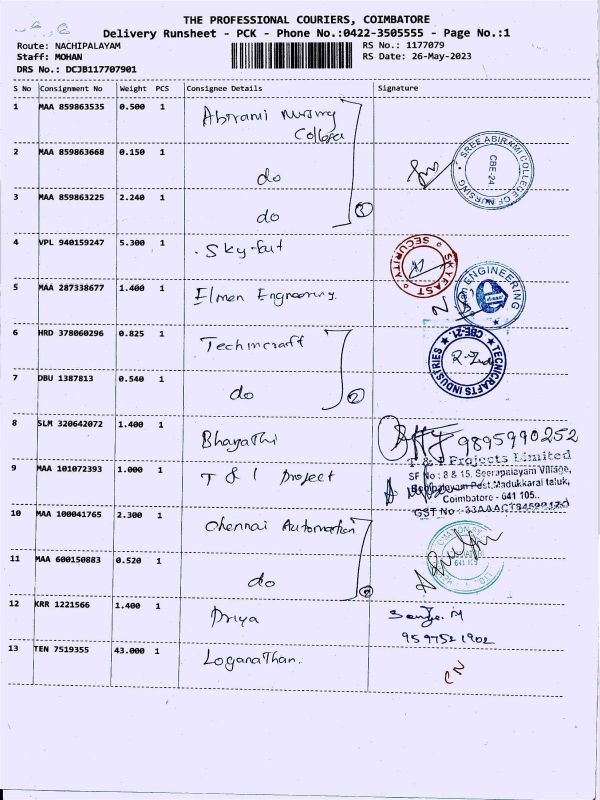 THE PROFESSIONAL COURIERS, COIMBATORE
Delivery Runsheet - PCK - Phone No.:0422-3505555 - Page No.:1
Route: NACHIPALAYAM RS No.: 1177079
Staff: MOHAN RS Date: 26-May-2023
DRS No.: DCJB117707901
S No Consignment No Weight PCS Consignee Details Signature
1 MAA 859863535 0.500 1 Abirami Nursing
College
2 MAA 859863668 0.150 1 do
3 MAA 859863225 2.240 1 do 3
SREE ABIRAMI COLLEGE OF NURSING
CBE-24
4 VPL 940159247 5.300 1 Sky-fast
SKYFAST SECURITY
5 MAA 287338677 1.400 1 Elmen Engneering.
ENGINEERING
6 HRD 378060296 0.825 1 Technicraft
7 DBU 1387813 0.540 1 do 2
TECNICRAFTS INDUSTRIES
CBE-21.
8 SLM 320642072 1.400 1 Bharathi 9895990252
9 MAA 101072393 1.000 1 T & I Project
T & I Projects Limited
SF No : 8 & 15, Seerapalayam Village,
Seerapalayam Post, Madukkarai taluk,
Coimbatore - 641 105..
10 MAA 100041765 2.300 1 Chennai Automation
11 MAA 600150883 0.520 1 do 2
12 KRR 1221566 1.400 1 Priya
9597521902
13 TEN 7519355 43.000 1 Loganathan.
CN